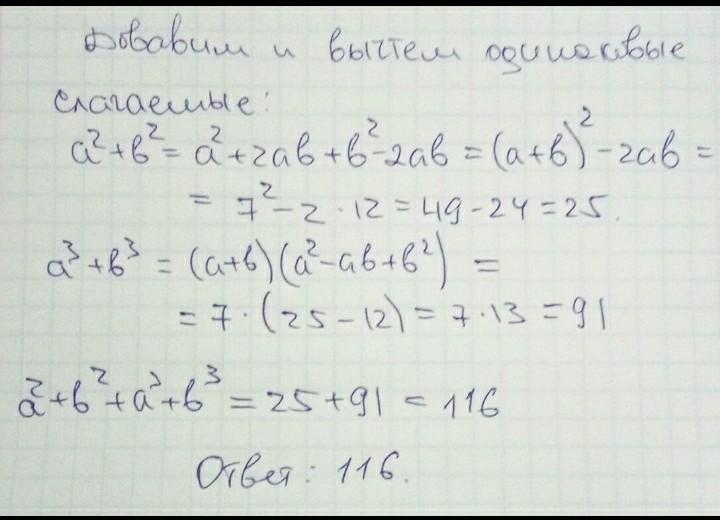 Добавим и вычтем одинаковые
слагаемые:
a² + b² = a² + 2ab + b² - 2ab = (a+b)² - 2ab =
= 7² - 2 · 12 = 49 - 24 = 25.
a³ + b³ = (a+b)(a² - ab + b²) =
= 7 · (25 - 12) = 7 · 13 = 91
a² + b² + a³ + b³ = 25 + 91 = 116
Ответ: 116.